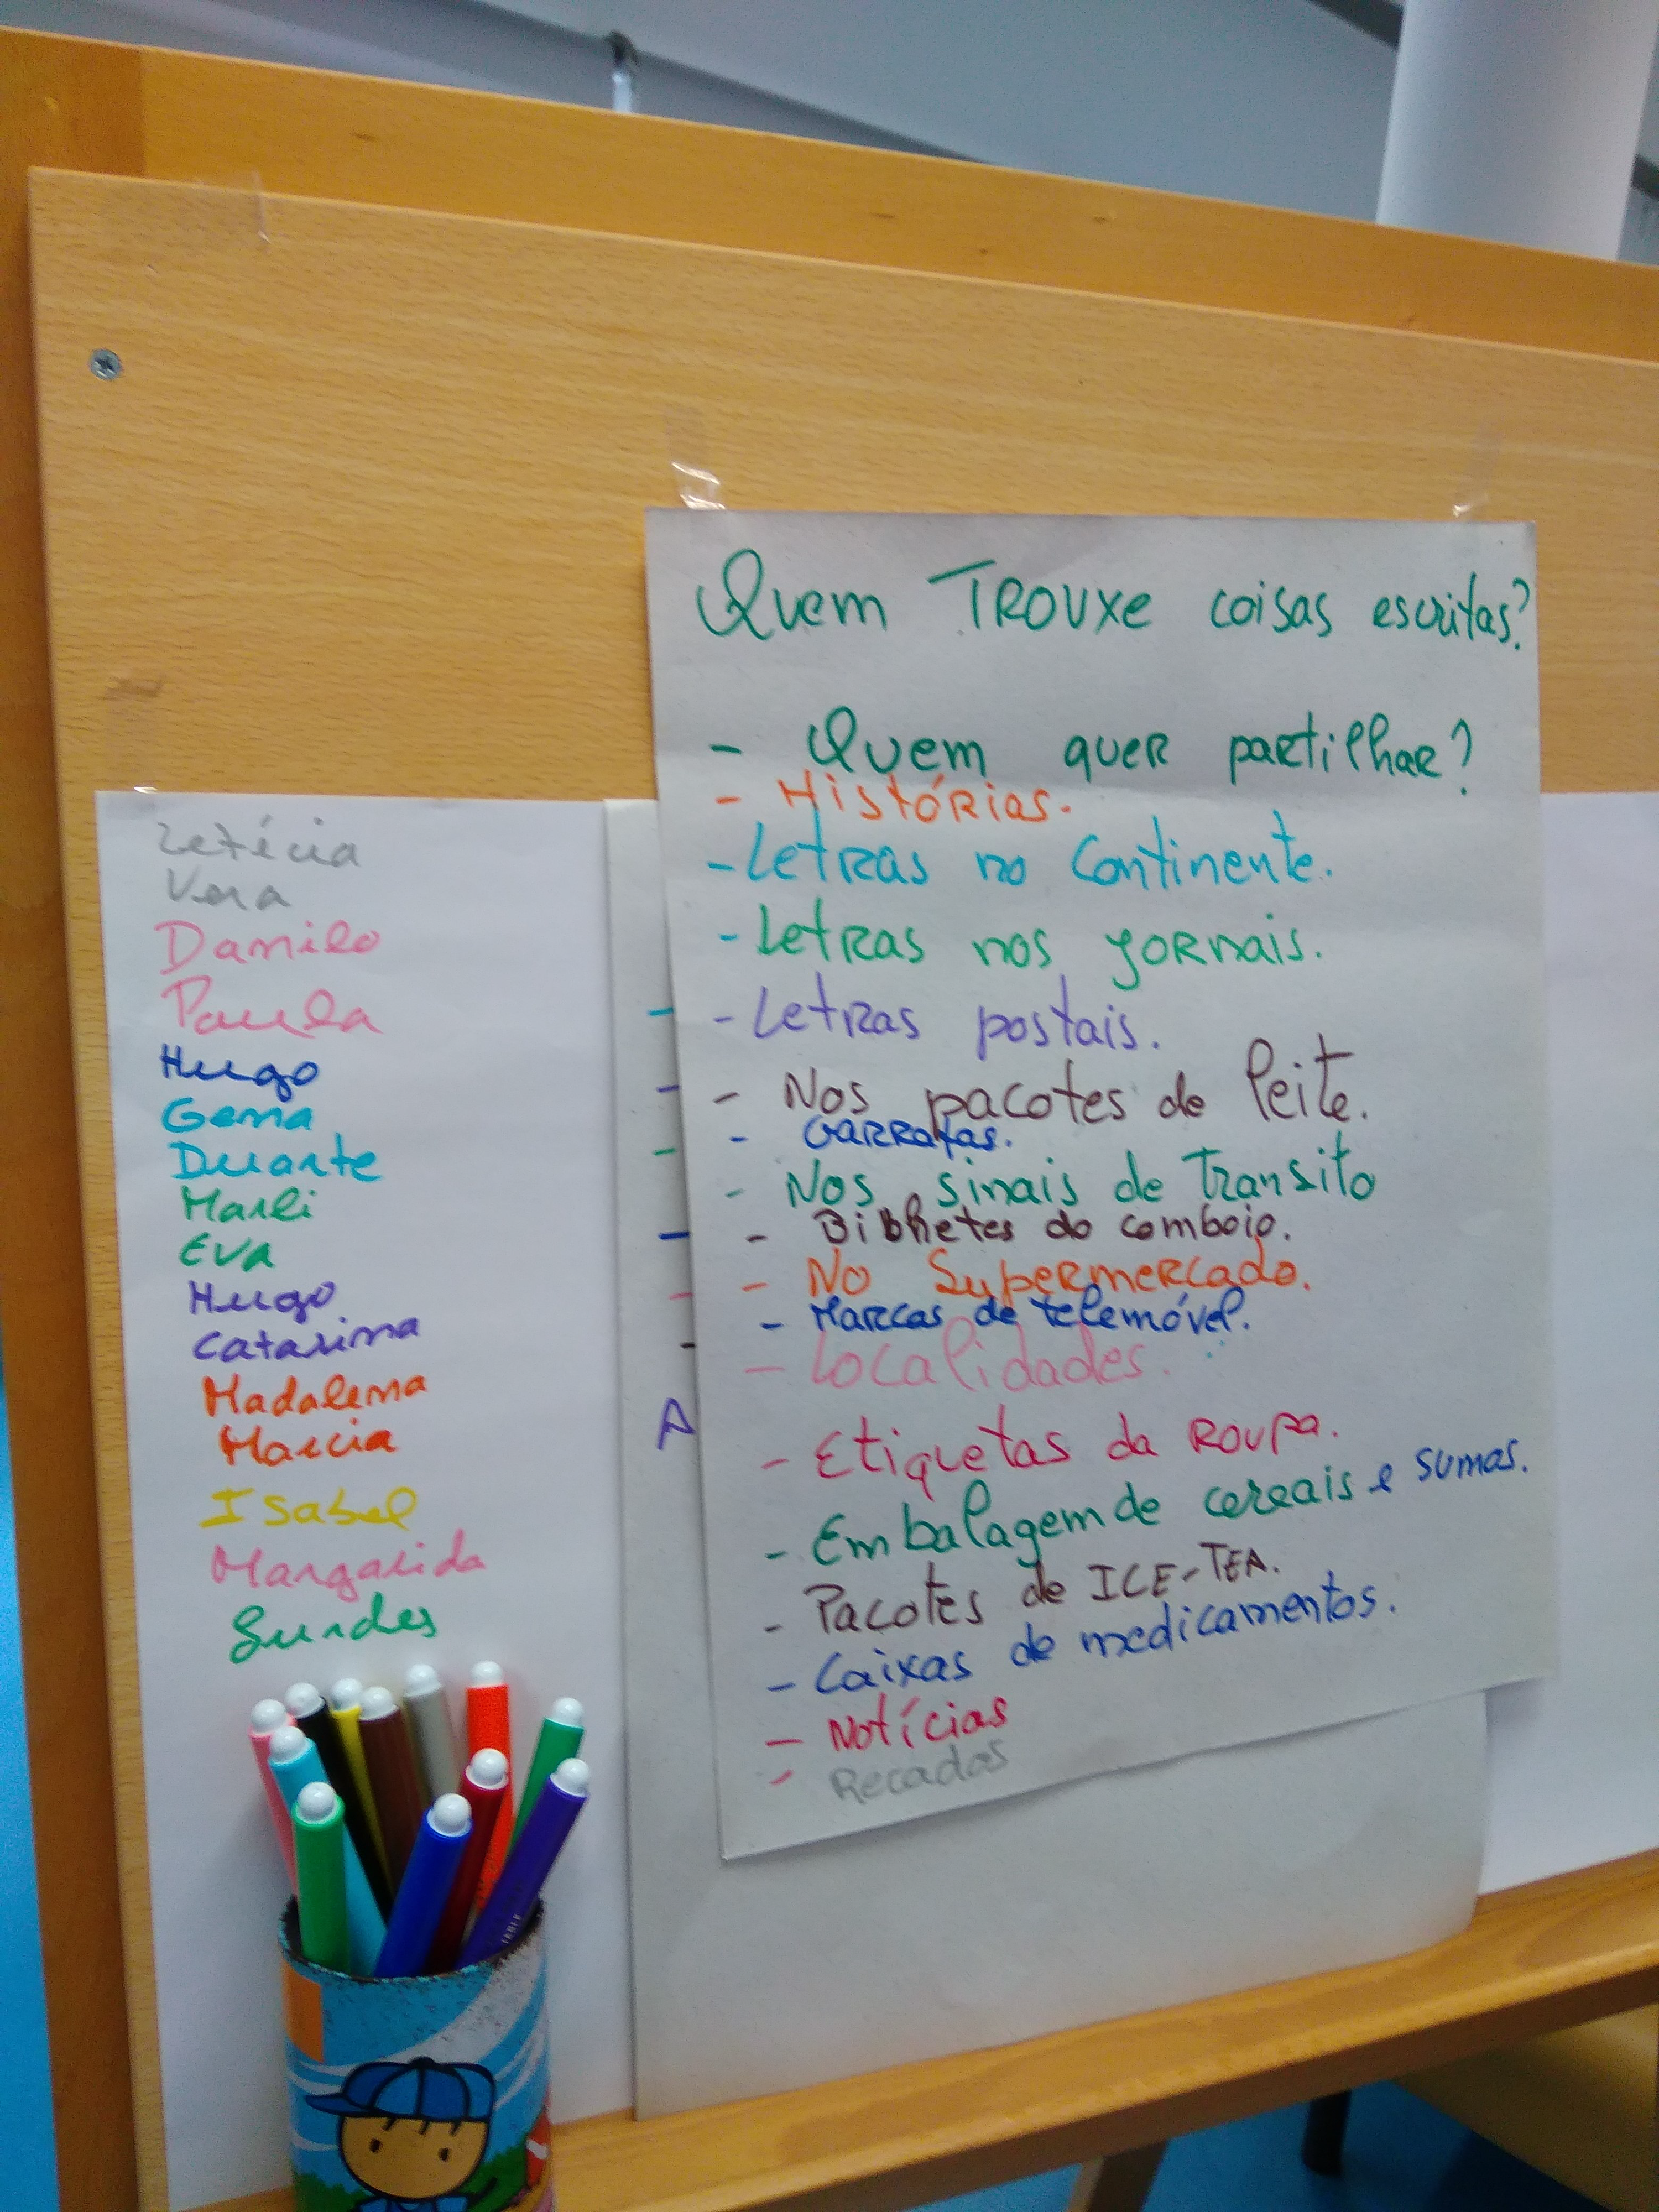 Letícia
Vera
Danilo
Paula
Hugo
Gema
Duarte
Marli
Eva
Hugo
Catarina
Madalena
Marcia
Isabel
Margarida
A
Quem TROUXe coisas escritas?
- Quem queR partilhar?
- Histórias.
- Letras no Continente.
- Letras nos jornais.
- Letras postais.
- Nos pacotes de leite.
- Garrafas.
- Nos sinais de Transito
- Bibhetes do comboio.
- No Supermercado.
- Marcas de telemóvel.
- Localidades.
- Etiquetas da Roupa.
- Embalagem de cereais e sumas.
- Pacotes de ICE-TEA.
- Caixas de medicamentos.
- Notícias
- Recados